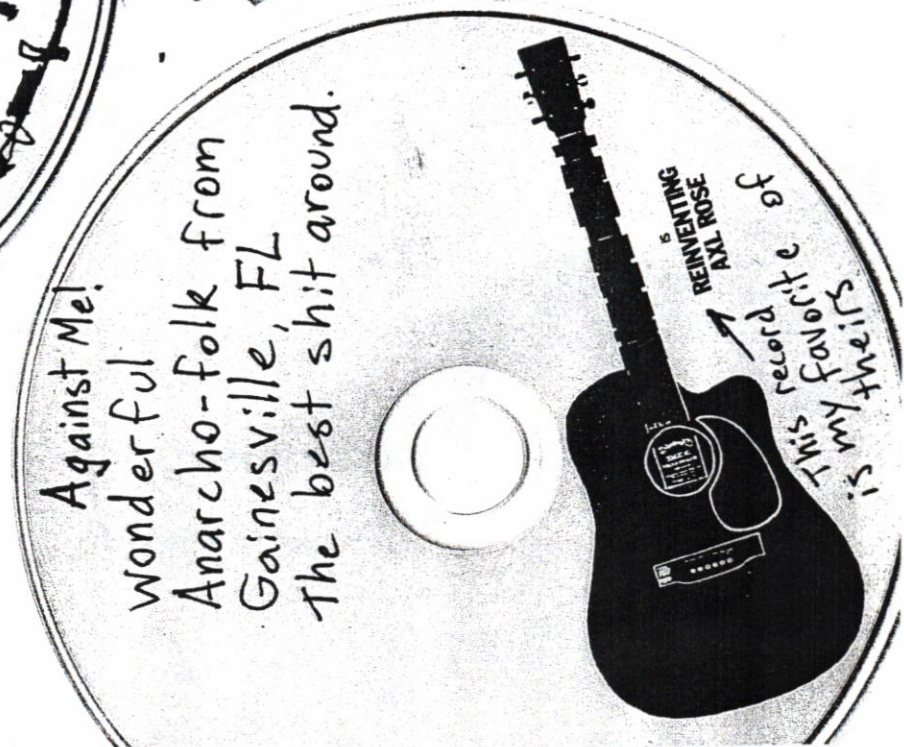 Against Me!
Wonderful
Anarcho-folk from
Gainesville, FL
The best shit around.
IS
REINVENTING
AXL ROSE
This record
is my favorite of
theirs